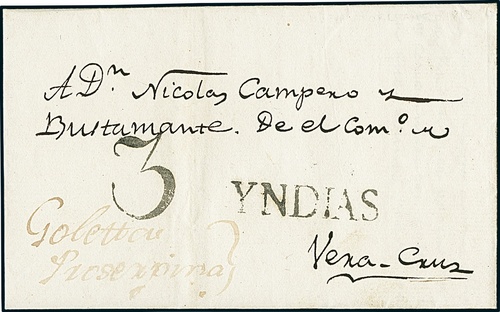 A Dn. Nicolas Campero y
Bustamante. De el Como. en
3
YNDIAS
Goletta
Proserpina
Vera-Cruz